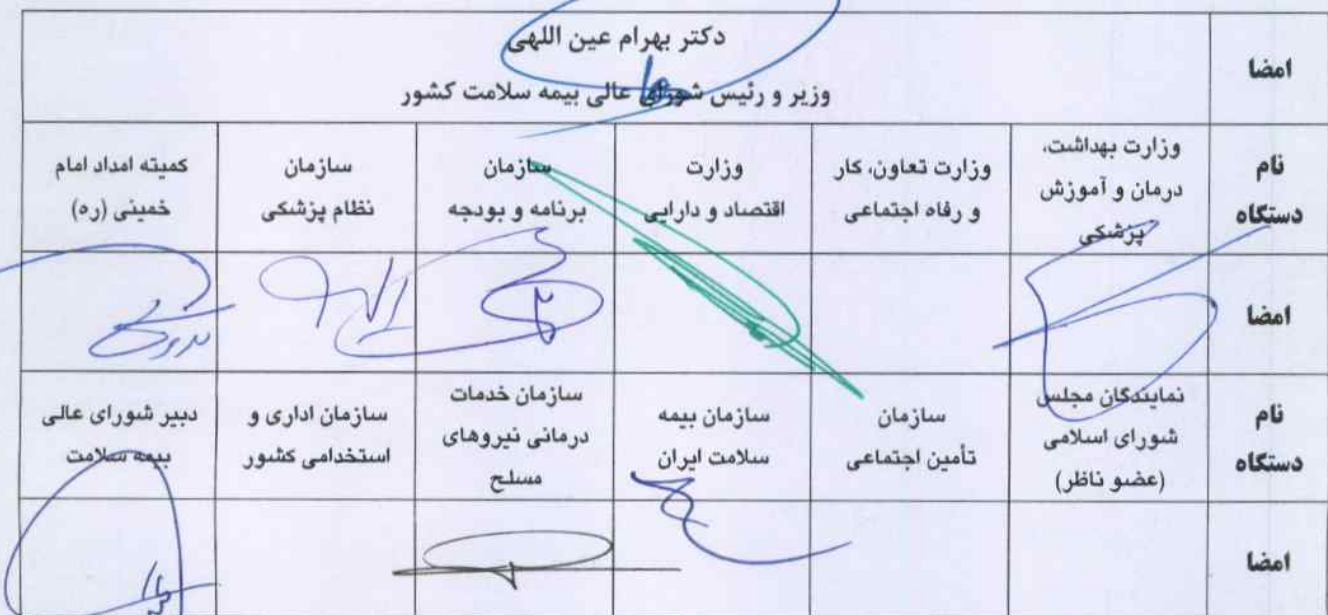 امضا
دکتر بهرام عین اللهی
وزیر و رئیس شورای عالی بیمه سلامت کشور
نام دستگاه
وزارت بهداشت، درمان و آموزش پزشکی
وزارت تعاون، کار و رفاه اجتماعی
وزارت اقتصاد و دارایی
سازمان برنامه و بودجه
سازمان نظام پزشکی
کمیته امداد امام خمینی (ره)
امضا
نام دستگاه
نمایندگان مجلس شورای اسلامی (عضو ناظر)
سازمان تأمین اجتماعی
سازمان بیمه سلامت ایران
سازمان خدمات درمانی نیروهای مسلح
سازمان اداری و استخدامی کشور
دبیر شورای عالی بیمه سلامت
امضا